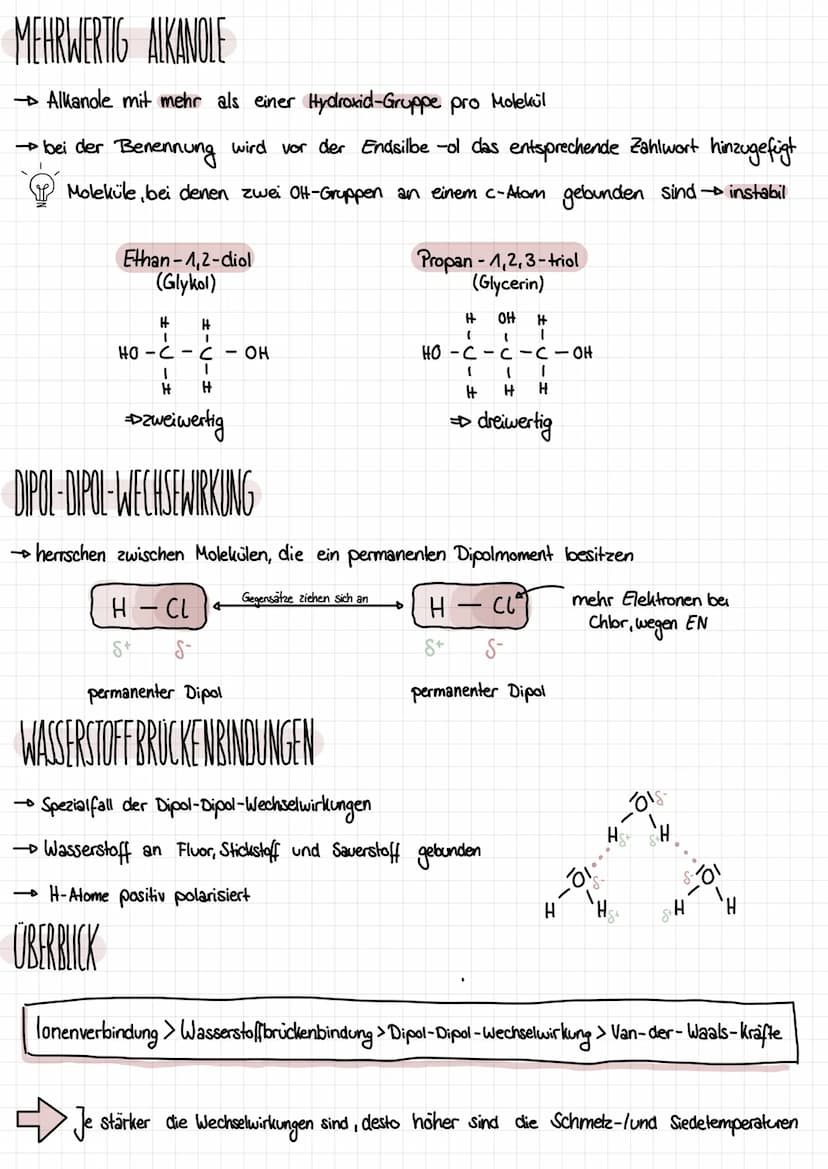 MEHRWERTIG ALKANOLE
→ Alkanole mit mehr als einer Hydroxid-Gruppe pro Molekül
→ bei der Benennung wird vor der Endsilbe -ol das entsprechende Zahlwort hinzugefügt
Moleküle, bei denen zwei OH-Gruppen an einem C-Atom gebunden sind → instabil
Ethan-1,2-diol Propan-1,2,3-triol
(Glykol) (Glycerin)
H H H OH H
HO - C - C - OH HO - C - C - C - OH
H H H H H
⇒ zweiwertig ⇒ dreiwertig
DIPOL-DIPOL-WECHSEWIRKUNG
→ herrschen zwischen Molekülen, die ein permanenten Dipolmoment besitzen
H - Cl Gegensätze ziehen sich an H - Cl mehr Elektronen bei
Chlor, wegen EN
δ+ δ- δ+ δ-
permanenter Dipol permanenter Dipol
WASSERSTOFFBRÜCKENBINDUNGEN
→ Spezialfall der Dipol-Dipol-Wechselwirkungen
→ Wasserstoff an Fluor, Stickstoff und Sauerstoff gebunden
→ H-Atome positiv polarisiert
O δ-
H δ+ δ+ H
O δ- δ- O
H H δ+ δ+ H H
ÜBERBLICK
Ionenverbindung > Wasserstoffbrückenbindung > Dipol-Dipol-Wechselwirkung > Van-der-Waals-Kräfte
Je stärker die Wechselwirkungen sind, desto höher sind die Schmelz-/und Siedetemperaturen